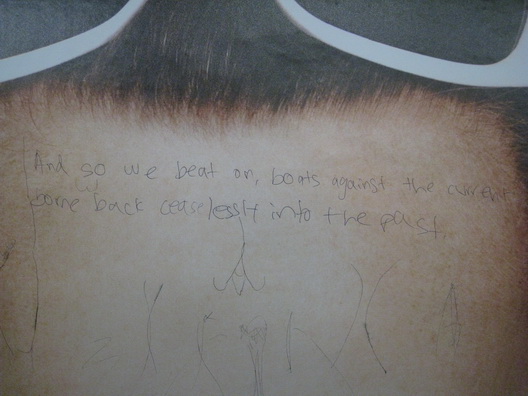 And so we beat on, boats against the current
borne back ceaselessly into the past.